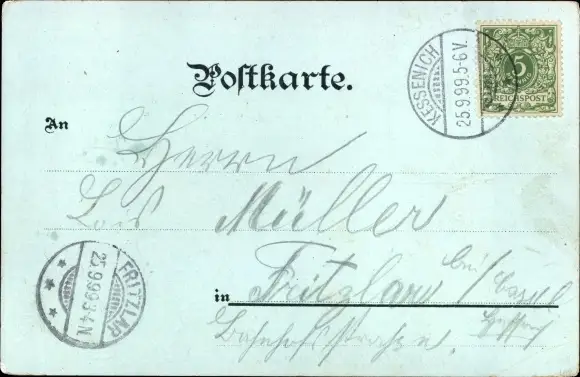 Postkarte.
KESSENICH
25.9.99.5-6V.
5
REICHSPOST
An
Herrn
Müller
in Fritzlar bei
Bahnhofstrasse.
FRITZLAR
25.9.99.3-4N